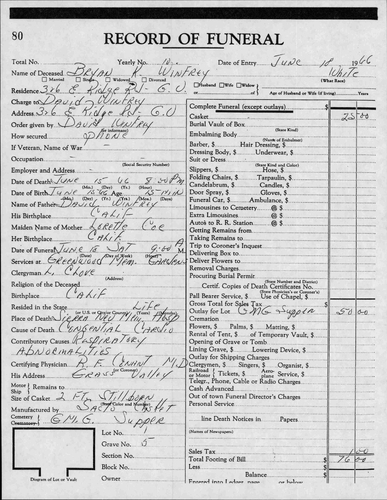 80
RECORD OF FUNERAL
Total No. Yearly No. Date of Entry June 18 1966
Name of Deceased Bryan K. Winfrey White
Married Single Widowed Divorced (What Race)
Residence 326 E. Ridge Rd - G.V. Husband Wife Widow of Age of Husband or Wife (if living) Years
Charge to David Winfrey
Address 326 E. Ridge Rd - G.V.
Order given by David Winfrey
(or informant)
How secured Phone
If Veteran, Name of War
Occupation (Social Security Number)
Employer and Address
Date of Death June 15 66 8:50 PM
(Mo.) (Day) (Yr.) (Hour)
Date of Birth June Age
Name of Father David Winfrey
His Birthplace Calif
Maiden Name of Mother Lorette Coe
Her Birthplace Calif
Date of Funeral June 18 Sat 9:00 A
Services at Greenwood Mem. Gardens
(Address)
Clergyman L. Clove
Religion of the Deceased
Birthplace Calif
Resided in the State Life
Place of Death Sierra Nev Mem. Hosp
Cause of Death Congenital Cardio
Contributory Causes Respiratory
Abnormalities
Certifying Physician R. F. Conant M.D.
His Address Grass Valley
Motor Ship Remains to
Size of Casket 2 Ft. Stillborn
(State Color and Number)
Manufactured by Sacto. Casket
Cemetery Crematory G.M.G. Supper
Lot No.
Grave No. 5
Section No.
Block No.
Owner
Diagram of Lot or Vault
Complete Funeral (except outlays) $
Casket 25 00
Burial Vault of Box
(State Kind)
Embalming Body
(Name of Embalmer)
Barber, $ Hair Dressing, $
Dressing Body, $ Underwear, $
Suit or Dress
(State Kind and Color)
Slippers, $ Hose, $
Folding Chairs, $ Tarpaulin, $
Candelabrum, $ Candles, $
Door Spray, $ Gloves, $
Funeral Car, $ Ambulance, $
Limousines to Cemetery @ $
Extra Limousines @ $
Autos to R. R. Station @ $
Getting Remains from
Taking Remains to
Trip to Coroner's Inquest
Delivering Box to
Deliver Flowers to
Removal Charges
Procuring Burial Permit
(State Number and District)
Certif. Copies of Death Certificates No.
(State Physician's or Coroner's)
Pall Bearer Service, $ Use of Chapel, $
Gross Total for Sales Tax $
Outlay for Lot GMG Supper 50 00
Cremation
Flowers, $ Palms, $ Matting, $
Rental of Tent, $ of Temporary Vault, $
Opening of Grave or Tomb
Lining Grave, $ Lowering Device, $
Outlay for Shipping Charges
Clergymen, $ Singers, $ Organist, $
Railroad or Motor Tickets, $ Aeroplane Service, $
Telegr., Phone, Cable or Radio Charges
Cash Advanced
Out of town Funeral Director's Charges
Personal Service
line Death Notices in Papers
(Names of Newspapers)
Sales Tax 1 00
Total Footing of Bill $ 76 00
Less
Balance $
Entered into Ledger, page or below